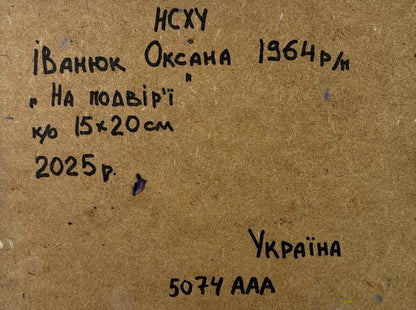 НСХУ
Іванюк Оксана 1964 р/н
„ На подвір'ї "
к/о 15×20 см
2025 р.
Україна
5074 ААА